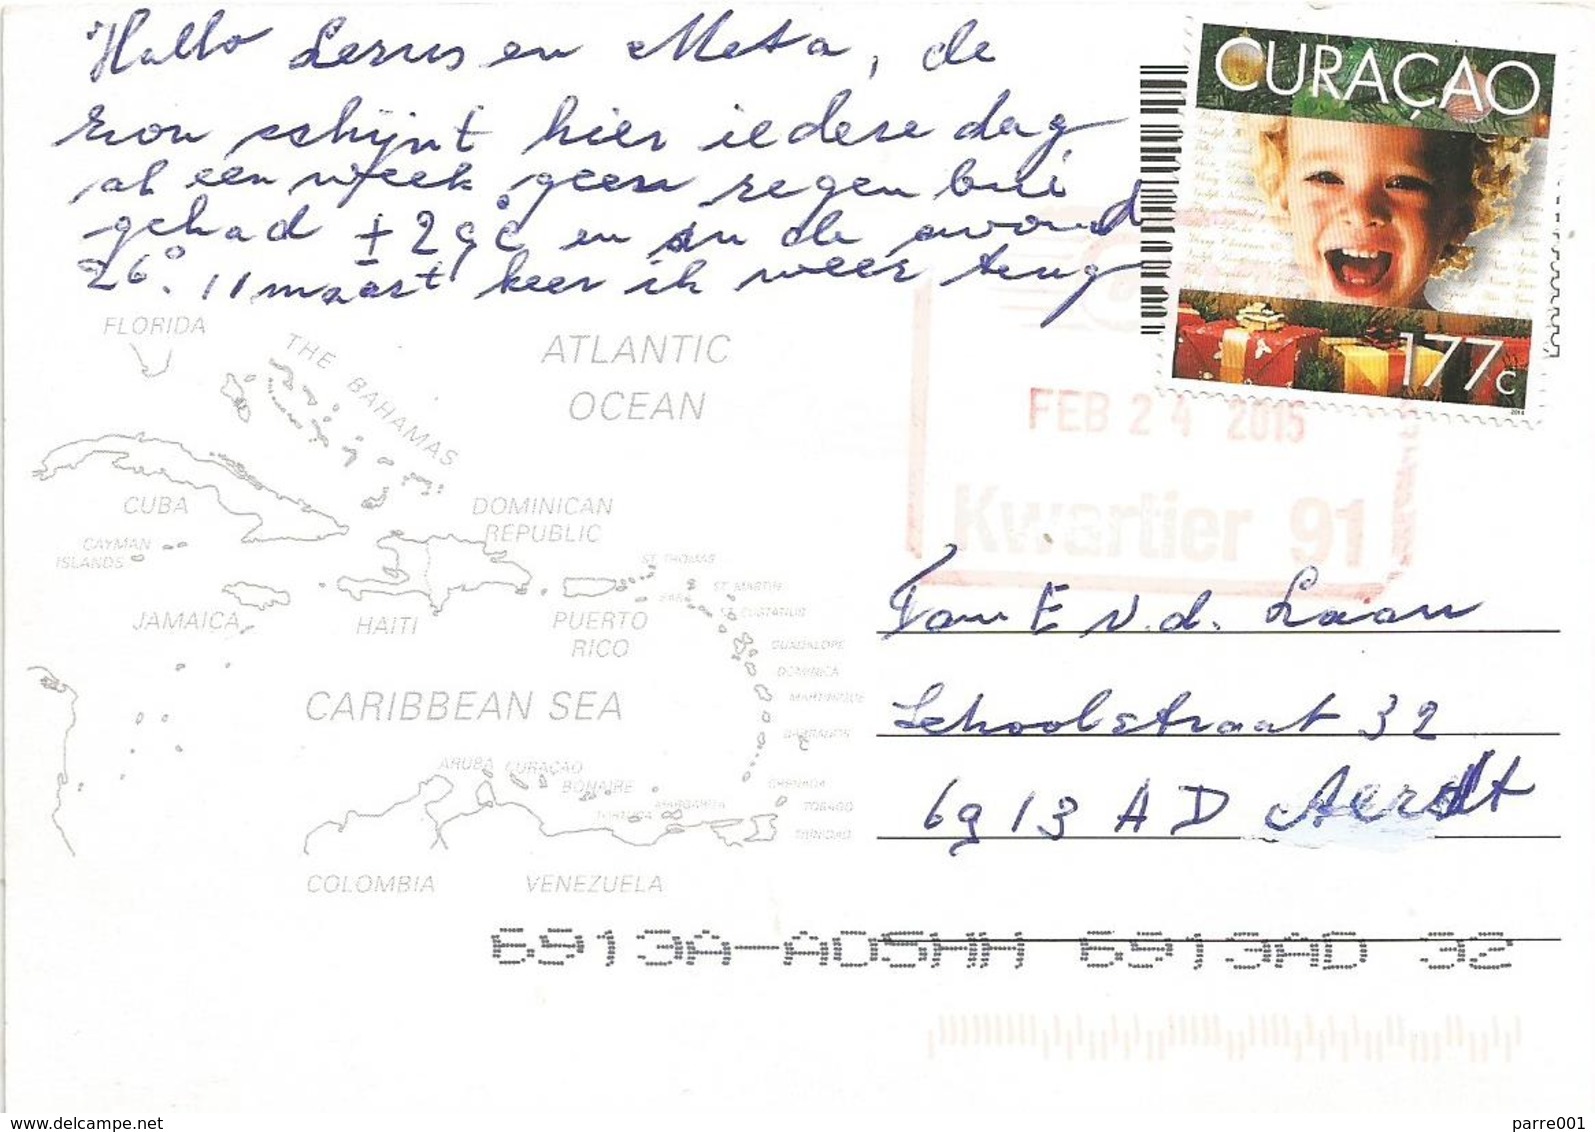 Hallo Lerus en Meta, de
zon schijnt hier iedere dag,
al een week geen regenbui
gehad ± 29°C en in de avond
26°. 11 maart keer ik weer terug
CURAÇAO
177c
FEB 24 2015
Kwartier 91
FLORIDA
THE BAHAMAS
ATLANTIC
OCEAN
CUBA
CAYMAN
ISLANDS
DOMINICAN
REPUBLIC
JAMAICA
HAITI
PUERTO
RICO
ST. THOMAS
ST. MARTIN
SABA
ST. EUSTATIUS
GUADALOPE
DOMINICA
MARTINIQUE
BARBADOS
CARIBBEAN SEA
ARUBA
CURAÇAO
BONAIRE
MARGARITA
TORTUGA
GRENADA
TOBAGO
TRINIDAD
COLOMBIA
VENEZUELA
Fam E v.d. Laan
Schoolstraat 32
6913 AD Aerdt
6913A-AD5HH 6913AD 32
www.delcampe.net
parre001